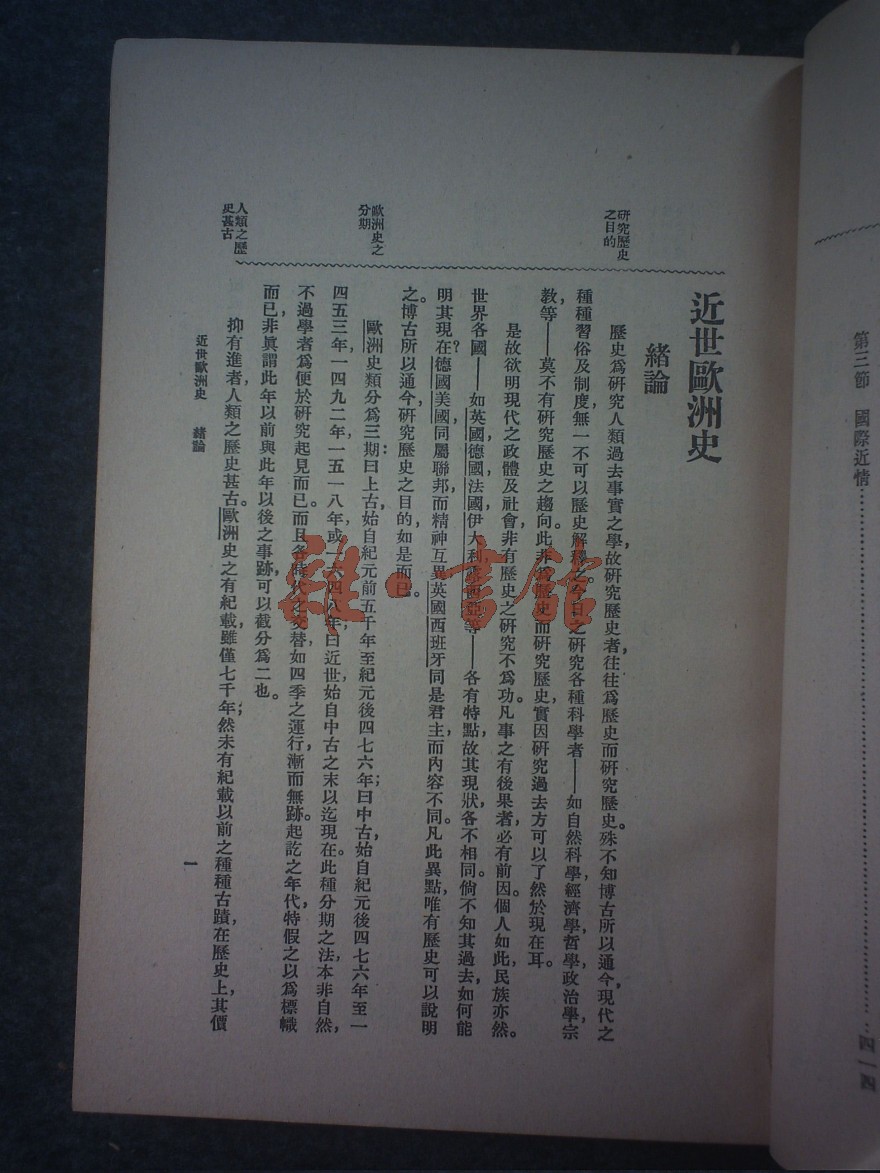 第三節　國際近情……………………………四一四
近世歐洲史
緒論
研究歷史
之目的
歷史爲研究人類過去事實之學故研究歷史者，往往爲歷史而研究歷史。殊不知博古所以通今，現代之
種種習俗及制度，無一不可以歷史解釋之。今日之研究各種科學者——如自然科學，經濟學，哲學，政治學，宗
教，等——莫不有研究歷史之趨向。此非爲歷史而研究歷史，實因研究過去方可以了然於現在耳。
是故欲明現代之政體及社會，非有歷史之研究不爲功。凡事之有後果者，必有前因。個人如此，民族亦然。
世界各國——如英國，德國，法國，伊大利，露西亞等——各有特點，故其現狀，各不相同。倘不知其過去，如何能
明其現在？德國美國，同屬聯邦，而精神互異，英國西班牙同是君主，而內容不同。凡此異點，唯有歷史可以說明
之。博古所以通今，研究歷史之目的，如是而已。
歐洲史之
分期
歐洲史類分爲三期：曰上古，始自紀元前五千年至紀元後四七六年；曰中古，始自紀元後四七六年至一
四五三年，一四九二年，一五一八年，或一六四八年；曰近世，始自中古之末以迄現在。此種分期之法，本非自然，
不過學者爲便於研究起見而已。而且各時代之交替，如四季之運行，漸而無跡。起訖之年代，特假之以爲標幟
而已，非眞謂此年以前與此年以後之事跡，可以截分爲二也。
人類之歷
史甚古
抑有進者，人類之歷史甚古。歐洲史之有紀載，雖僅七千年；然未有紀載以前之種種古蹟，在歷史上，其價
近世歐洲史　緒論
一
雜·書館